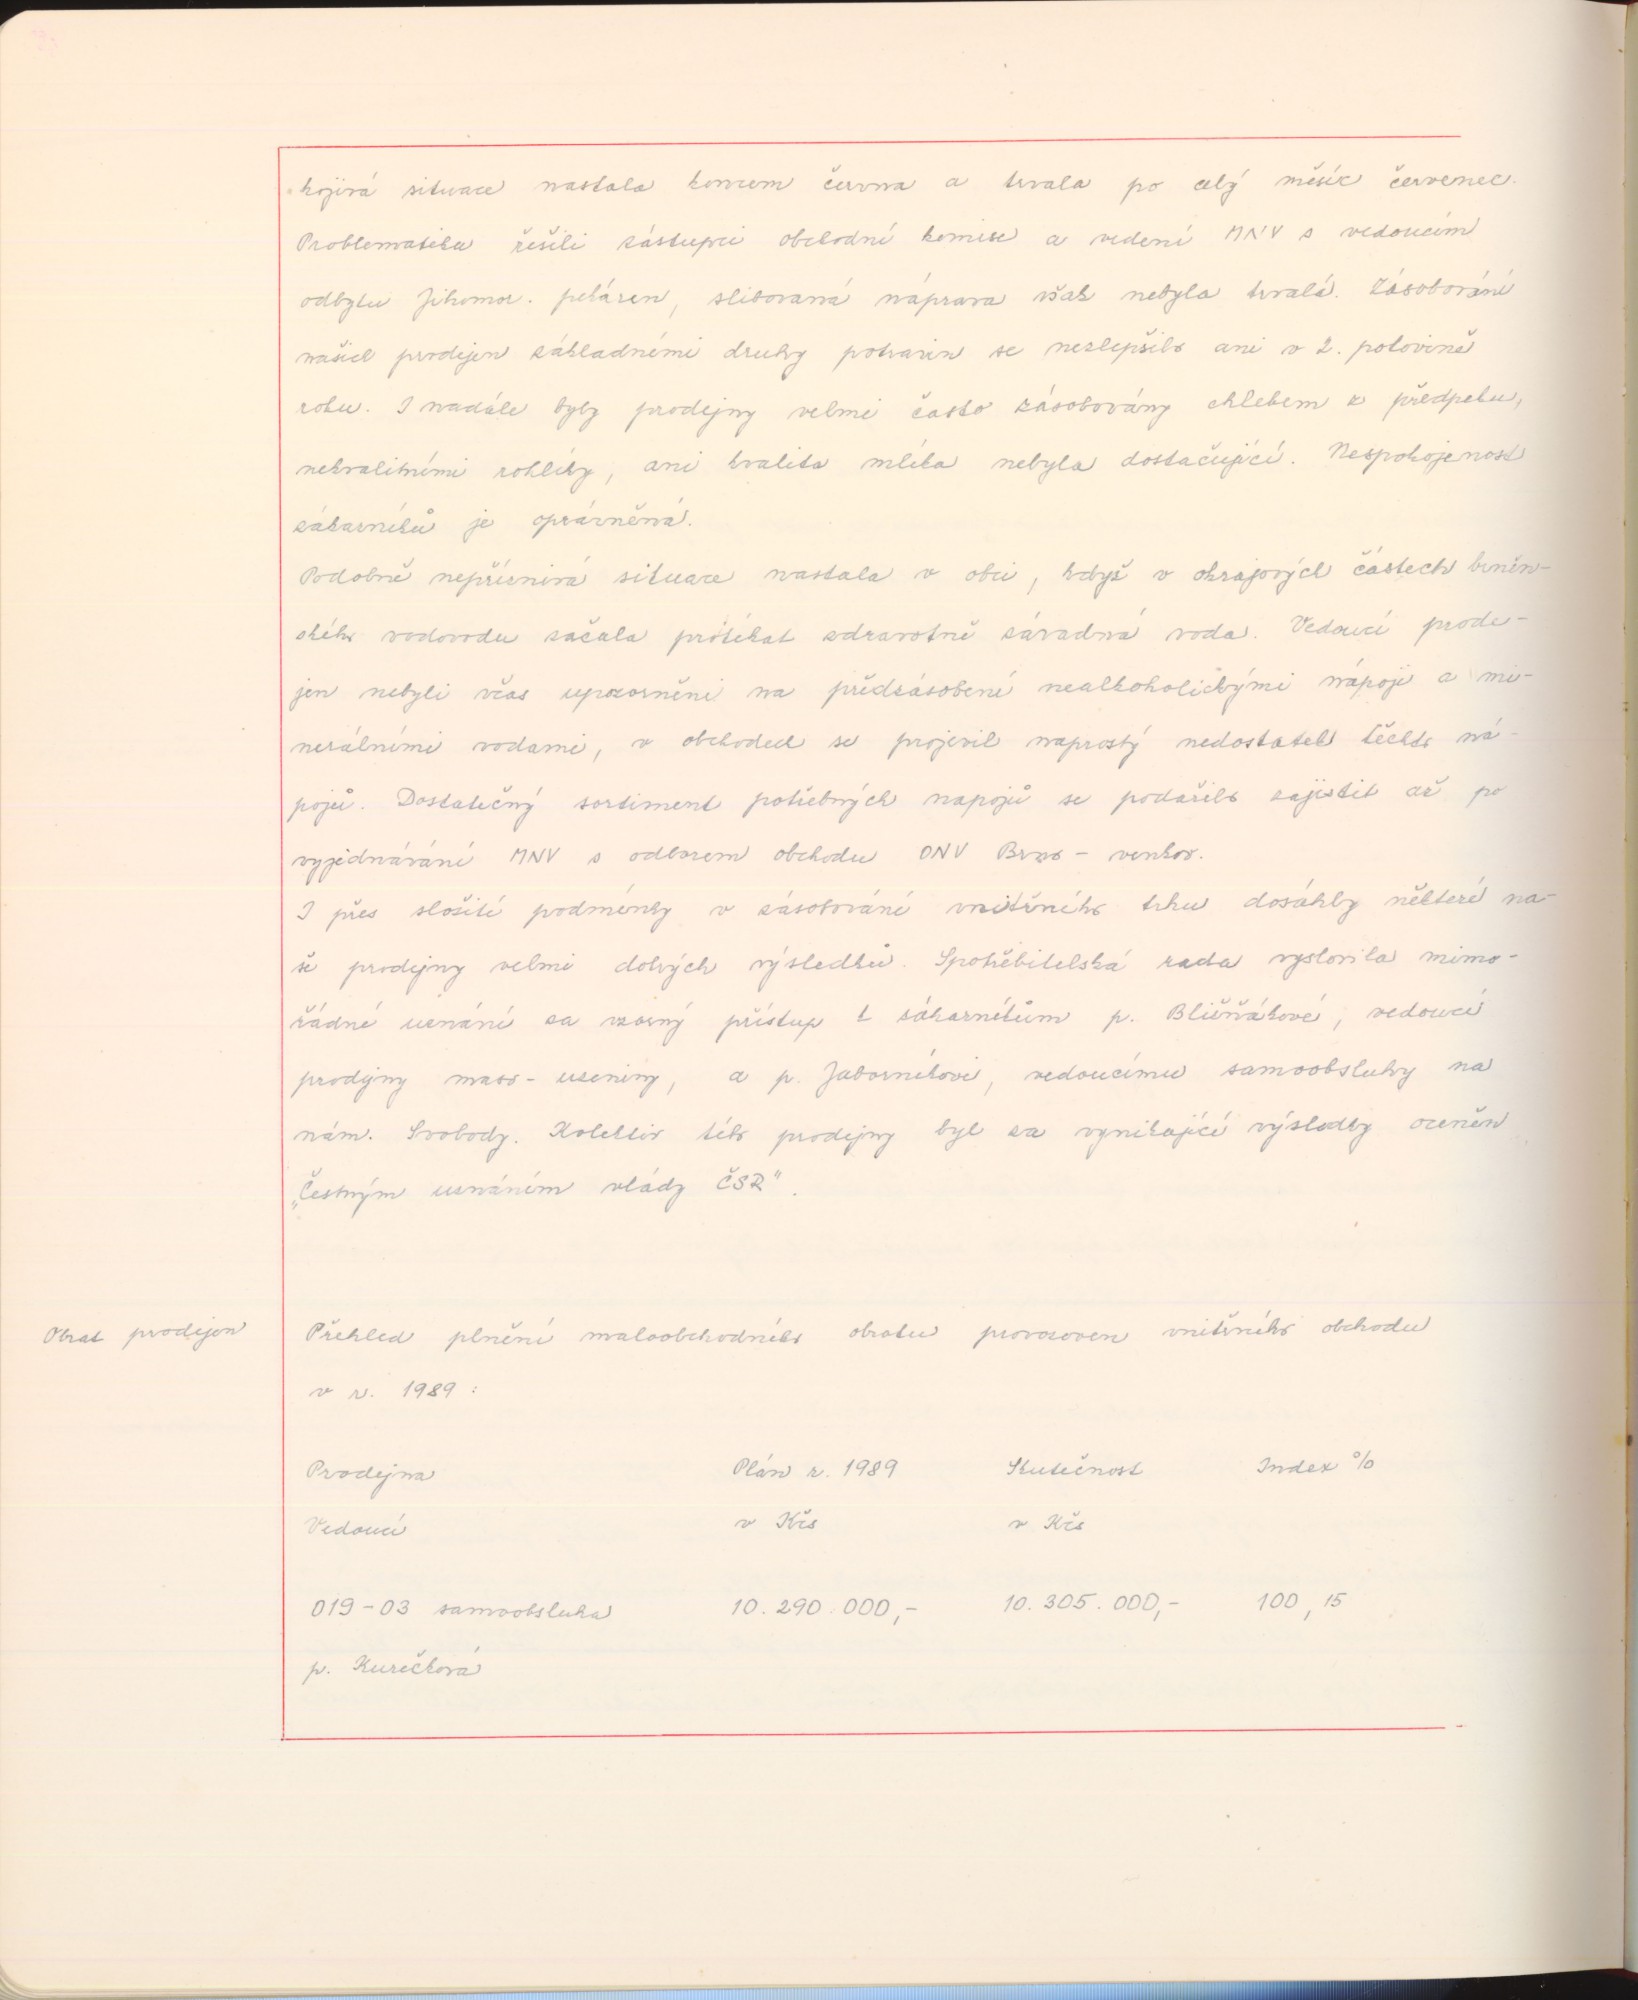 kojivá situace nastala koncem června a trvala po celý měsíc červenec.
Problematiku řešili zástupci obchodní komise a vedení MNV s vedoucím
odbytu Jihomor. pekáren, slibovaná náprava však nebyla trvalá. Zásobování
našich prodejen základními druhy potravin se nezlepšilo ani v 2. polovině
roku. I nadále byly prodejny velmi často zásobovány chlebem z předpeku,
nekvalitními rohlíky, ani kvalita mléka nebyla dostačující. Nespokojenost
zákazníků je oprávněná.
Podobně nepříznivá situace nastala v obci, když v okrajových částech brněn-
ského vodovodu začala protékat zdravotně závadná voda. Vedoucí prode-
jen nebyli včas upozorněni na předzásobení nealkoholickými nápoji a mi-
nerálními vodami, v obchodech se projevil naprostý nedostatek těchto ná-
pojů. Dostatečný sortiment potřebných napojů se podařilo zajistit až po
vyjednávání MNV s odborem obchodu ONV Brno - venkov.
I přes složité podmínky v zásobování vnitřního trhu dosáhly některé na-
še prodejny velmi dobrých výsledků. Spotřebitelská rada vyslovila mimo-
řádné uznání za vzorný přístup k zákazníkům p. Bližňákové, vedoucí
prodejny maso - uzeniny, a p. Jaborníkovi, vedoucímu samoobsluhy na
nám. Svobody. Kolektiv této prodejny byl za vynikající výsledky oceněn
„Čestným uznáním vlády ČSR".
Obrat prodejen
Přehled plnění maloobchodního obratu provozoven vnitřního obchodu
v r. 1989 :
Prodejna Plán r. 1989 Skutečnost Index %
Vedoucí v Kčs v Kčs
019-03 samoobsluha 10.290.000,- 10.305.000,- 100,15
p. Kurečková